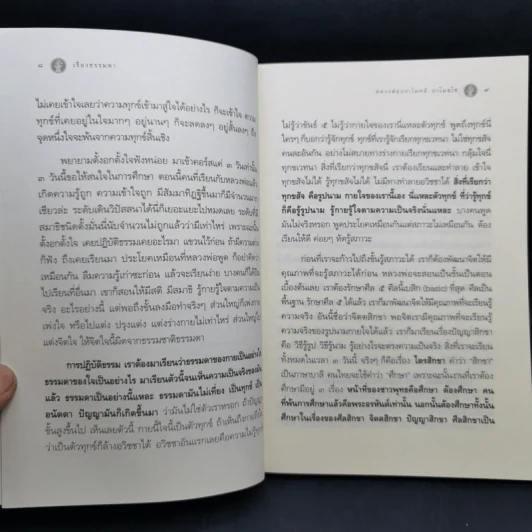 ๘ เรื่องธรรมดา
ไม่เคยเข้าใจเลยว่าความทุกข์เข้ามาสู่ใจได้อย่างไร ก็จะเข้าใจ ความ
ทุกข์ที่เคยอยู่ในใจมากๆ อยู่นานๆ ก็จะลดลงๆ อยู่สั้นลงๆ ถึง
จุดหนึ่งใจจะพ้นจากความทุกข์สิ้นเชิง
พยายามตั้งอกตั้งใจฟังหน่อย มาเข้าคอร์สแค่ ๓ วันเท่านั้น
๓ วันนี้ขอให้สนใจในการศึกษา ตอนนี้คนที่เรียนกับหลวงพ่อแล้ว
เกิดความรู้ถูก ความเข้าใจถูก มีสัมมาทิฏฐิขึ้นมาก็มีจำนวนมาก
เชียวล่ะ ระดับเดินวิปัสสนาได้นี่ก็เยอะแยะไปหมดเลย ระดับที่มี
สมาธิชนิดตั้งมั่นนี่นับจำนวนไม่ถูกแล้วว่ามีเท่าไหร่ เพราะฉะนั้น
ตั้งอกตั้งใจ เคยปฏิบัติธรรมเคยอะไรมา แขวนไว้ก่อน ถ้ามีความ
ก็ฟัง ถึงเคยเรียนมา ประโยคเหมือนที่หลวงพ่อพูด ก็อย่าคิดว่า
เหมือนกัน ลืมความรู้เก่าซะก่อน แล้วจะเรียนง่าย บางคนก็ได้
ไปเรียนที่อื่นมา เขาก็สอนให้มีสติ มีสมาธิ รู้กายรู้ใจตามความเป็น
จริง อะไรอย่างนี้ แต่พอถึงขั้นลงมือทำจริงๆ ส่วนใหญ่ก็เพ่งกาย
เพ่งใจ หรือไปแต่ง ปรุงแต่ง แต่งร่างกายไม่เท่าไหร่ ส่วนใหญ่ไป
แต่งจิตใจ ให้จิตใจนี้ผิดจากธรรมชาติธรรมดา
การปฏิบัติธรรม เราต้องมาเรียนรู้ธรรมดาของกายเป็นอย่างไร
ธรรมดาของใจเป็นอย่างไร มาเรียนตัวนี้จนเห็นความเป็นจริง
แล้ว ธรรมดาเป็นอย่างนี้แหละ ธรรมดามันไม่เที่ยง เป็นทุกข์ เป็น
อนัตตา ปัญญามันก็เกิดขึ้นมา ว่ามันไม่ใช่ตัวเราหรอก ถ้าปัญญา
ขั้นสูงขึ้นไป เห็นเลยตัวนี้ กายนี้ใจนี้เป็นตัวทุกข์ ถ้าเห็นถึง
ว่าเป็นตัวทุกข์ก็ล้างอวิชชาได้ อวิชชาอันแรกเลยคือความไม่รู้ทุกข์
หลวงพ่อปราโมทย์ ปาโมชฺโช ๙
ไม่รู้ว่าขันธ์ ๕ ไม่รู้ว่ากายใจของเรานี่แหละตัวทุกข์ พูดถึงทุกข์นี่
ใครๆ ก็บอกว่ารู้จักทุกข์ ทุกข์ที่เรารู้จักเรียกทุกขเวทนา ไม่ใช่ทุกขสัจ
คนละอันกัน อย่างไม่สบายทางร่างกายเรียกทุกขเวทนา กลุ้มใจนี่
ทุกขเวทนา สิ่งที่เรียกว่าทุกขสัจนี่ เราต้องเรียนและทำลาย เข้าใจ
ทุกขสัจไม่ได้ รู้ทุกขสัจไม่ได้ ไม่มีทางทำลายอวิชชาได้ สิ่งที่เรียกว่า
ทุกขสัจ คือรูปนาม กายใจของเรานี่เอง นี่แหละตัวทุกข์ ที่ว่ารู้ทุกข์
ก็คือรู้รูปนาม รู้กายรู้ใจตามความเป็นจริงนั่นแหละ บางคนพูด
มันไม่จริงหรอก พูดประโยคเหมือนกันแต่สภาวะไม่เหมือนกัน ต้อง
เรียนให้ดี ค่อยๆ หัดรู้สภาวะ
ก่อนที่เราจะก้าวไปถึงขั้นรู้สภาวะได้ เราก็ต้องพัฒนาจิตให้มี
คุณภาพที่จะรู้สภาวะได้ก่อน หลวงพ่อจะสอนเป็นขั้นเป็นตอน
เบื้องต้นเลย เราต้องรักษาศีล ๕ ศีลนี้เบสิก (basic) ที่สุด ศีลเป็น
พื้นฐาน รักษาศีล ๕ ได้แล้ว เราก็มาพัฒนาจิตให้มีคุณภาพที่จะเรียนรู้
ความจริง อันนี้ชื่อว่าจิตตสิกขา พอจิตเรามีคุณภาพที่จะเรียนรู้
ความจริงของรูปนามกายใจได้แล้ว เราก็มาเรียนเรื่องปัญญาสิกขา
คือ วิธีรู้รูป วิธีรู้นาม รู้อย่างไรจะตรงความเป็นจริง สิ่งที่จะเรียน
ทั้งหมดในเวลา ๓ วันนี้ จริงๆ ก็คือเรื่อง ไตรสิกขา คำว่า "สิกขา"
เป็นภาษาบาลี คนไทยจะใช้คำว่า "ศึกษา" เพราะฉะนั้นงานที่เราต้อง
ศึกษามีอยู่ ๓ เรื่อง หน้าที่ของชาวพุทธคือศึกษา ต้องศึกษา คน
ที่พ้นการศึกษาแล้วคือพระอรหันต์เท่านั้น นอกนั้นต้องศึกษาทั้งนั้น
ศึกษาในเรื่องของศีลสิกขา จิตตสิกขา ปัญญาสิกขา ศีลสิกขาเป็น